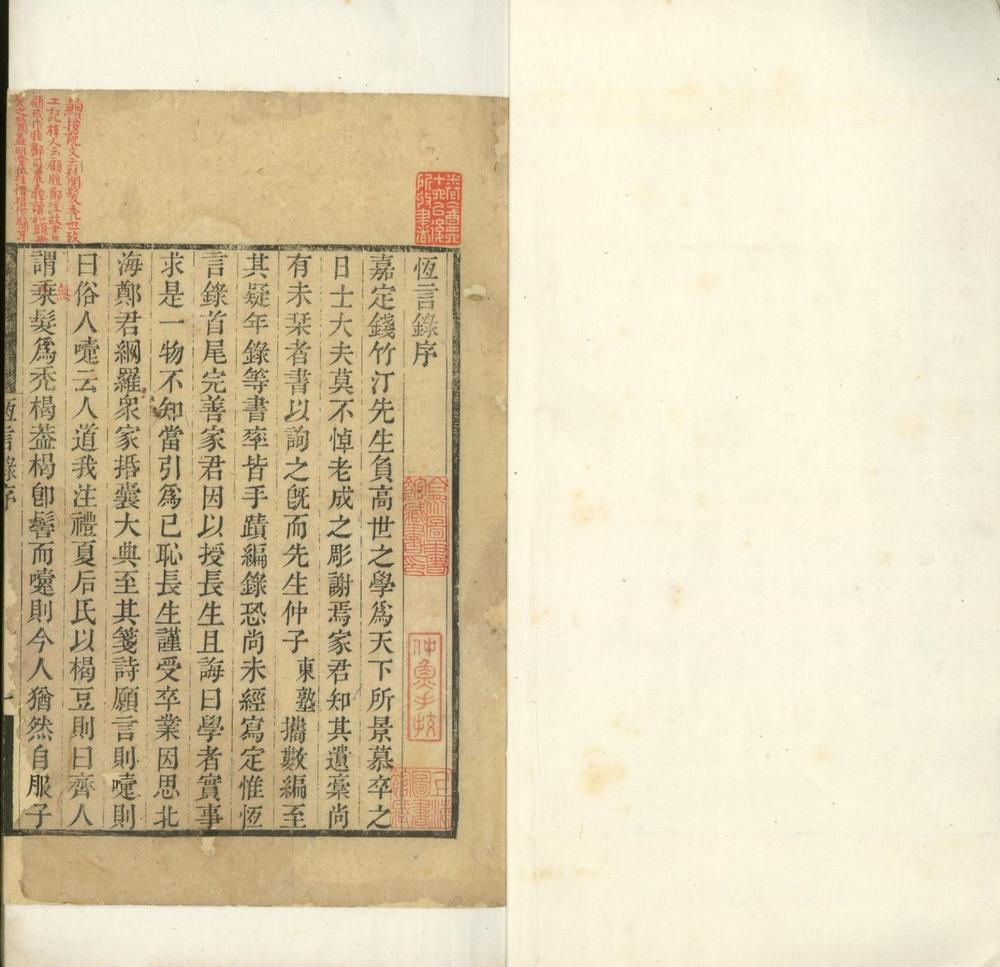 恆言錄序
嘉定錢竹汀先生負高世之學爲天下所景慕卒之
日士大夫莫不悼老成之彫謝焉家君知其遺稾尚
有未栞者書以詢之旣而先生仲子東塾攟數編至
其疑年錄等書率皆手蹟編錄恐尚未經寫定惟恆
言錄首尾完善家君因以授長生且誨曰學者實事
求是一物不知當引爲已恥長生謹受卒業因思北
海鄭君綱羅衆家括囊大典至其箋詩願言則嚔則
曰俗人嚔云人道我注禮夏后氏以楬豆則曰齊人
無
謂乘髮爲禿楬葢楬卽髻而嚔則今人猶然自服子
恆言錄序
一
仲魚手校